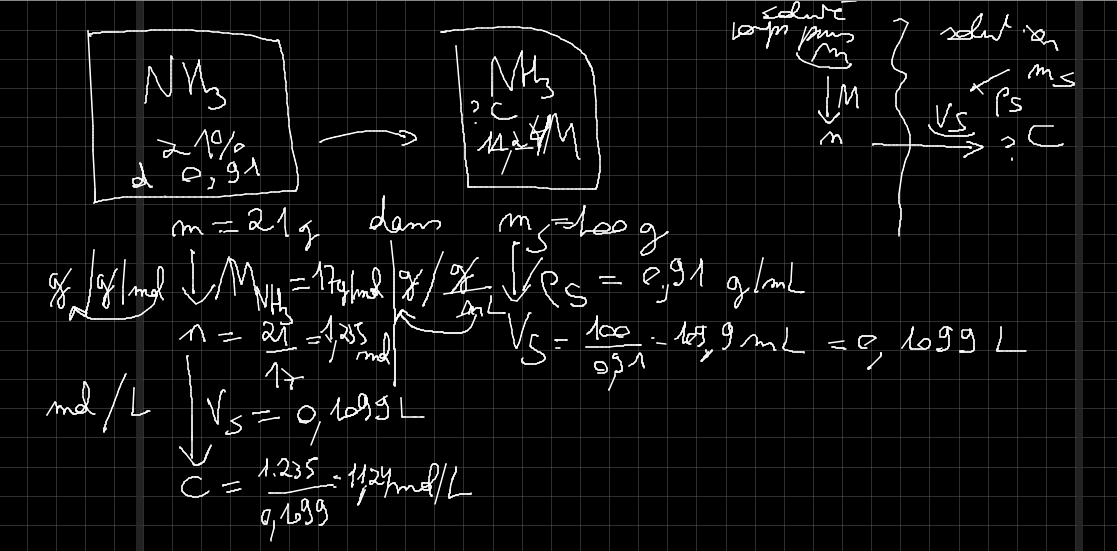 NH3
21%
d 0,91
NH3
? C
11,24 M
soluté
corps purs
m
M
n
solution
ms
ρs
Vs
? C
m = 21 g dans ms = 100 g
g/g/mol
M NH3 = 17 g/mol
g/g/mL
ρs = 0,91 g/mL
n = 21/17 = 1,235 mol
Vs = 100/0,91 = 109,9 mL = 0,1099 L
mol/L
Vs = 0,1099 L
C = 1.235/0,1099 = 11,24 mol/L